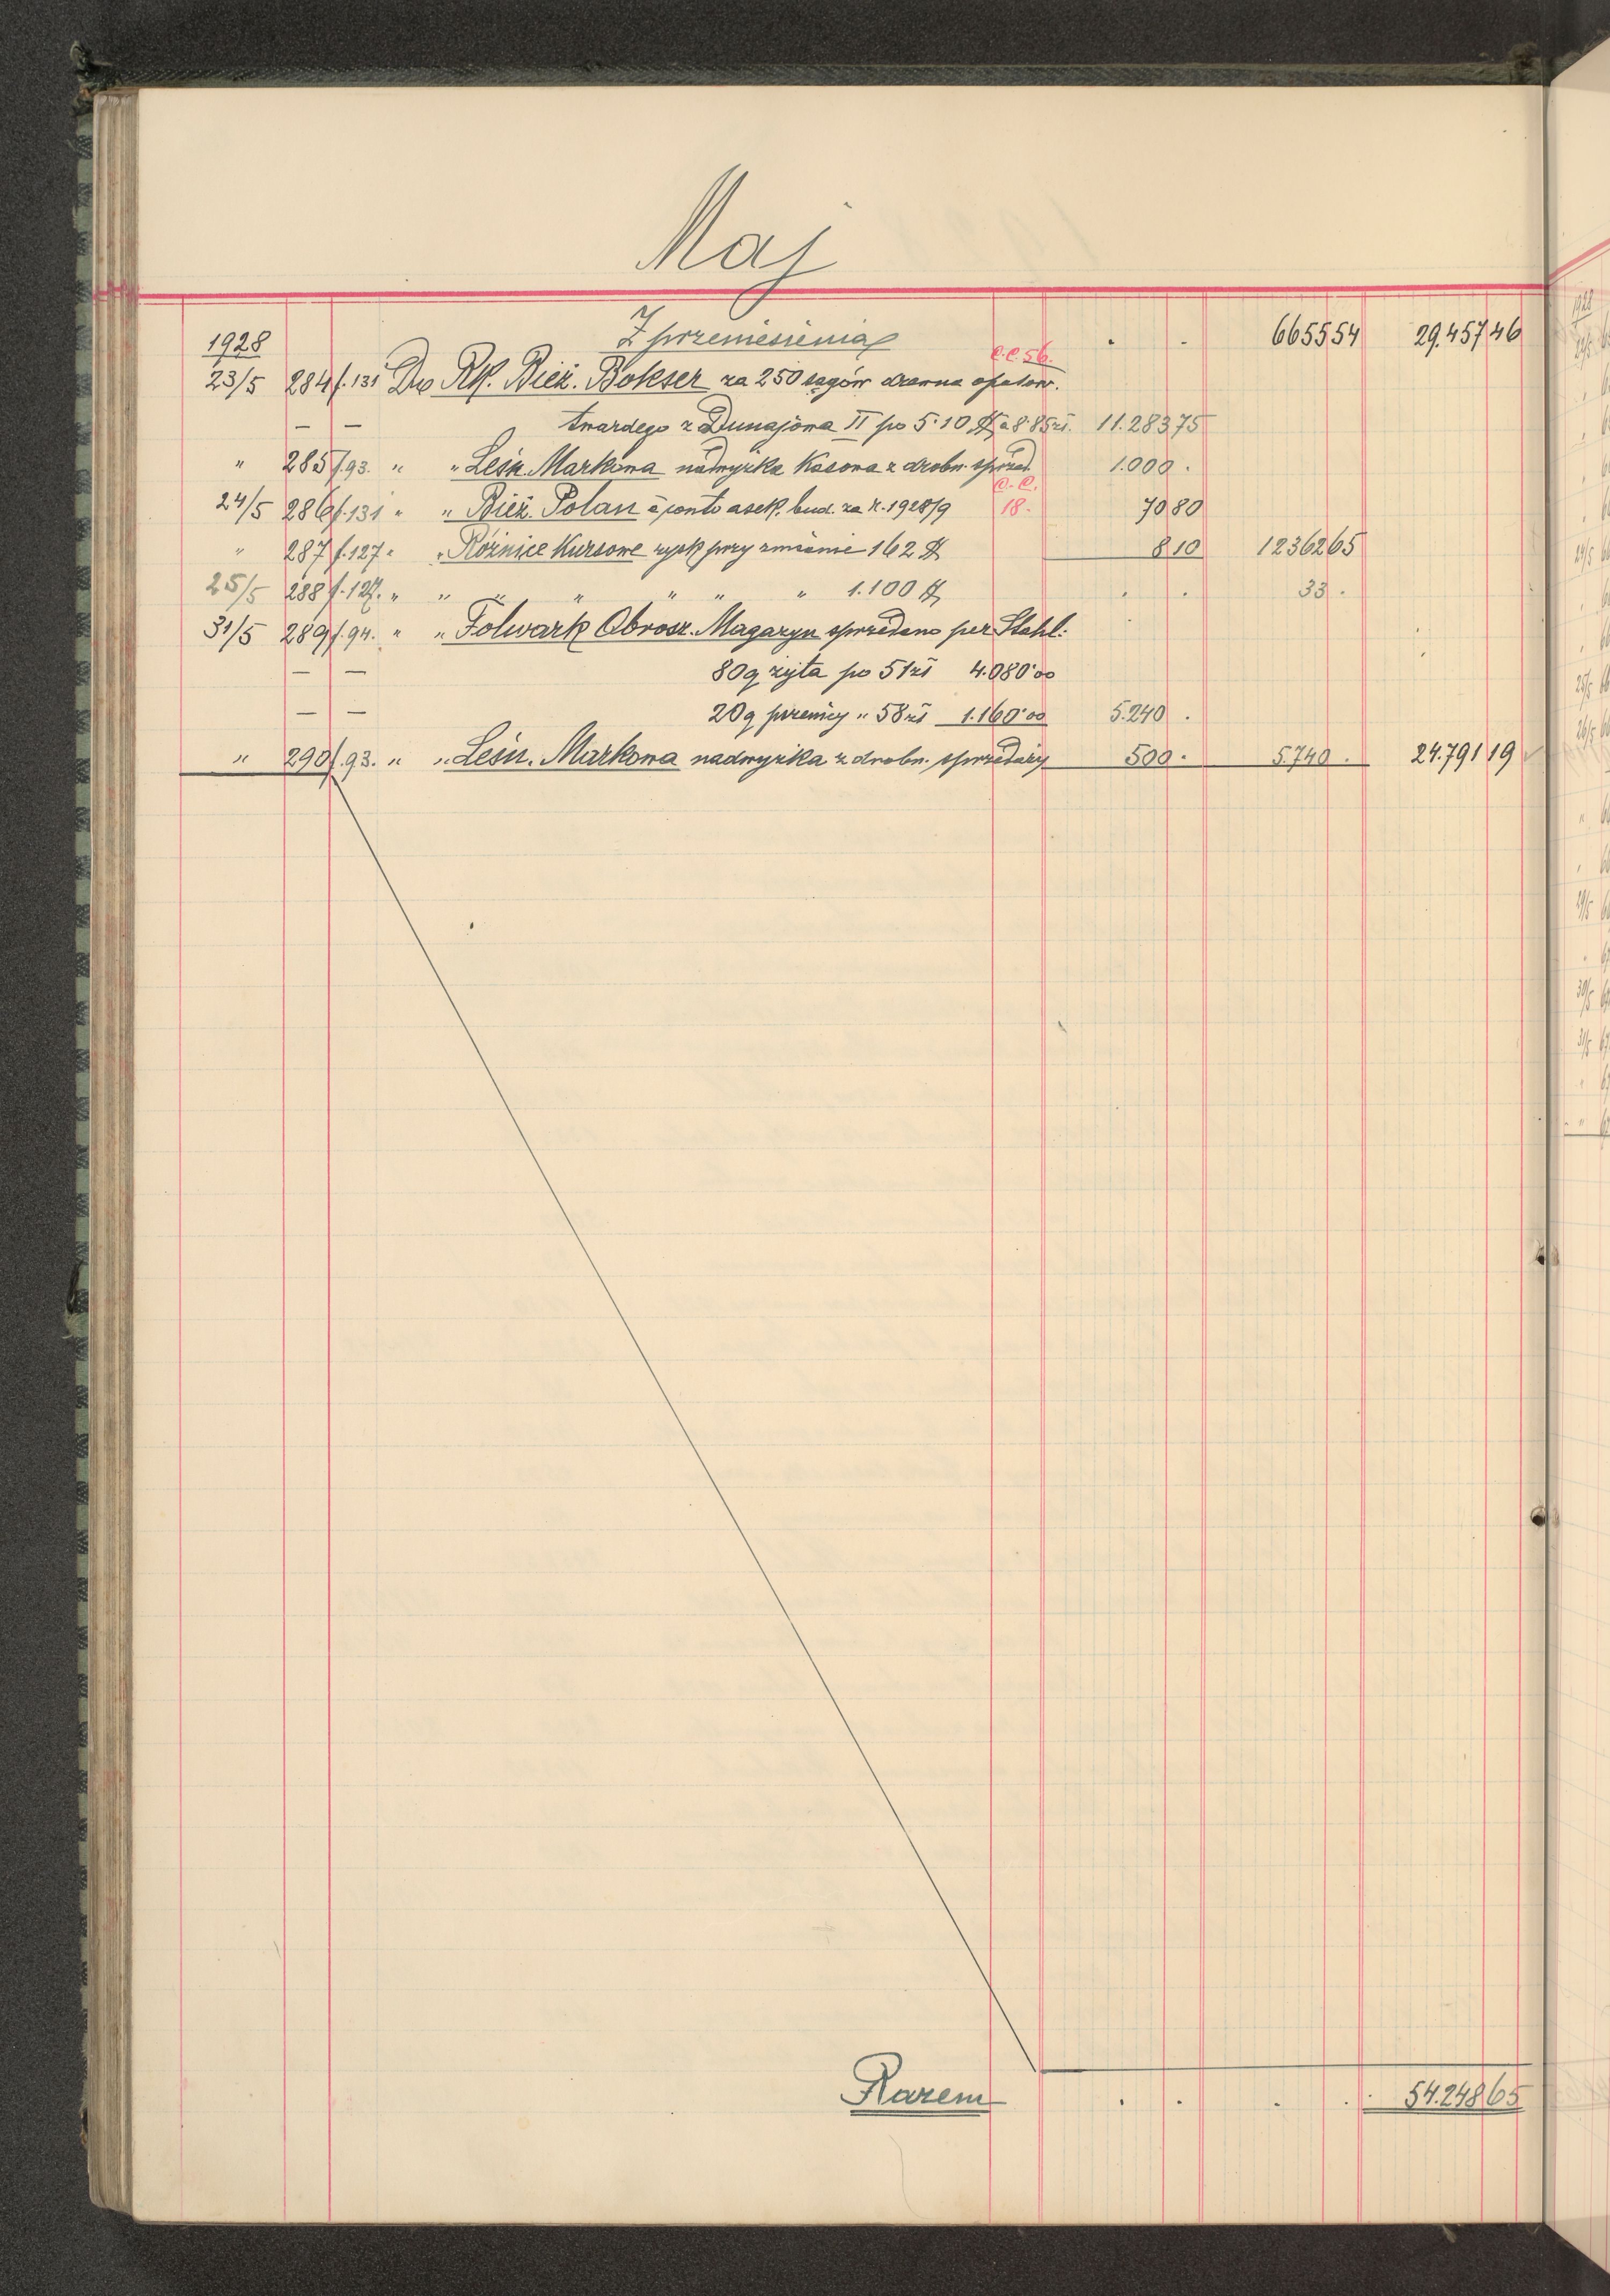 Maj
Z przeniesienia . . 6655 54 29.457 46
1928
c.c.56.
23/5 284 f.131 Do Rk. Bież. Bokser za 250 sągów drzewa opałow.
— — twardego z Dunajowa II po 5·10 $ à 8·85 zł. 11.283 75
" 285 f.93. " " Leśn. Markowa nadwyżka kasowa z drobn. sprzed. 1.000 .
c.c.
24/5 286 f.131 " " Bież. Polan à conto asek. bud. za r. 1928/9 18. 70 80
" 287 f.127 " " Różnice Kursowe zysk przy zmianie 162 $ 8 10 12362 65
25/5 288 f.127. " " " " " " " 1.100 $ . . 33 .
31/5 289 f.94. " " Folwark Obrosz. Magazyn sprzedano per Stahl:
— — 80 q żyta po 51 zł 4.080·00
— — 20 q pszenicy " 58 zł 1.160·00 5.240 .
" 290 f.93. " " Leśn. Markowa nadwyżka z drobn. sprzedaży 500 . 5.740 . 24.791 19
Razem . . . . . 54.248 65